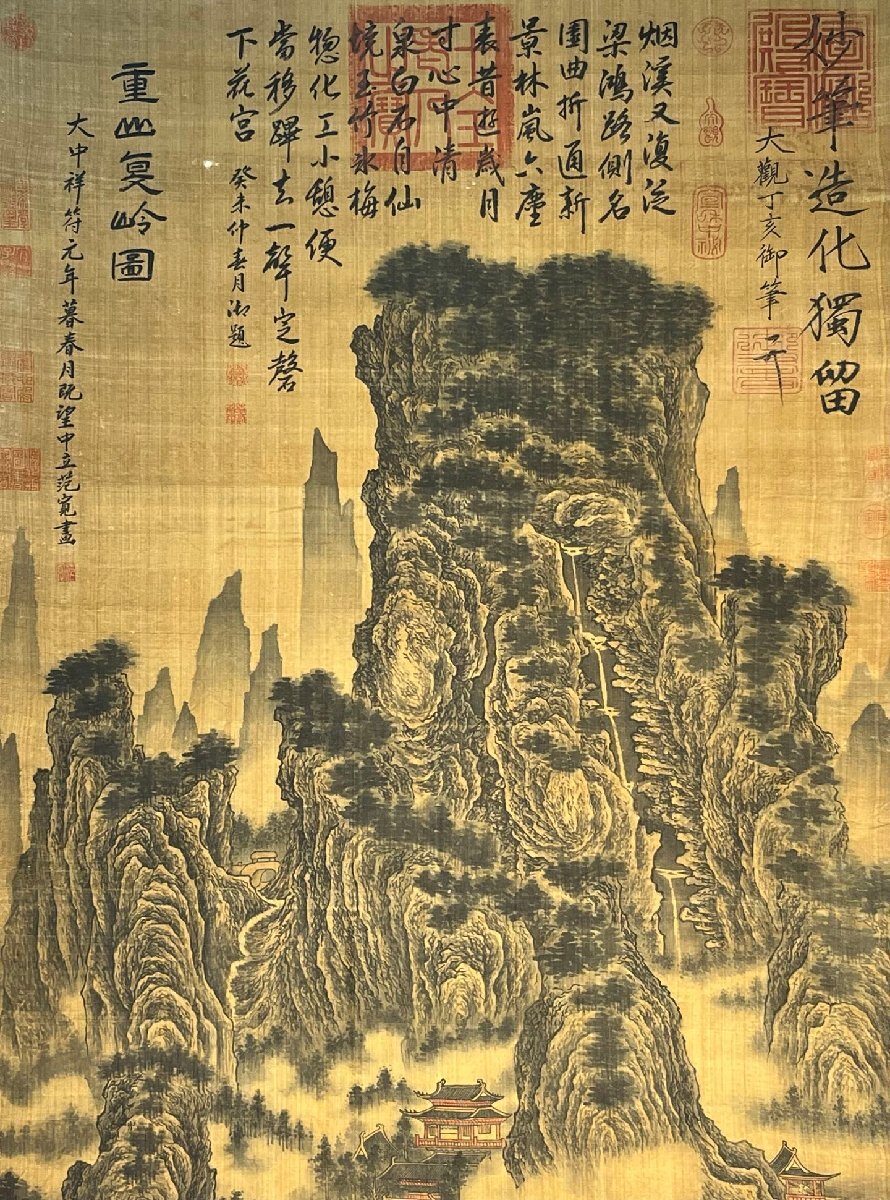 妙筆造化獨留
大觀丁亥御筆
烟溪又復泛
梁鴻路側名
園曲折通新
景林嵐六塵
表昔遊歲月
寸心中清
泉白石自仙
境玉竹冰梅
惚化工小憩便
當移蹕去一聲定磬
下花宮
癸未仲春月御題
重山复岭圖
大中祥符元年暮春月既望中立范寬畫